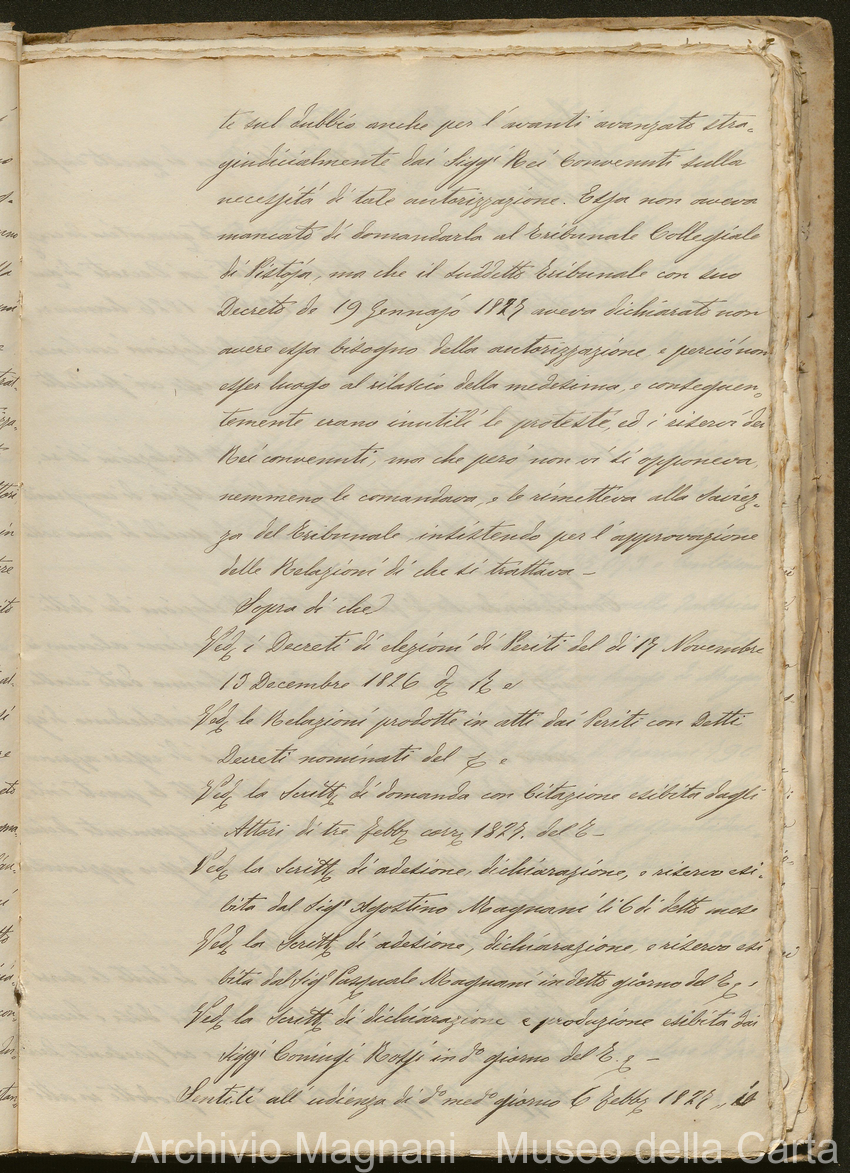 te sul dubbio anche per l'avanti avanzato stra=
giudicialmente dai Sigg.i Rei Convenuti sulla
necessità di tale autorizzazione. Essa non aveva
mancato di domandarla al Tribunale Collegiale
di Pistoja, ma che il suddetto Tribunale con suo
Decreto de 19 Gennajo 1827 aveva dichiarato non
avere essa bisogno della autorizzazione, e perciò non
esser luogo al rilascio della medesima, e conseguen=
temente erano inutili le proteste, ed i riservi dei
Rei convenuti, ma che però non vi si opponeva,
nemmeno le comandava, e le rimetteva alla Saviez=
za del Tribunale insistendo per l'approvazione
delle Relazioni di che si trattava —
Sopra di che
Ved. i Decreti di elezioni di Periti del dì 17 Novembre
13 Decembre 1826
Ved. le Relazioni prodotte in atti dai Periti con Detti
Decreti nominati del
Ved. la Scritt. di domanda con Citazione esibita dagli
Attori di tre Febb. corr. 1827. del E —
Ved. la Scritt. di adesione, dichiarazione, e riservo esi=
bita dal Sig.r Agostino Magnani li 6 di detto mese
Ved. la Scritt. di adesione, dichiarazione, e riservo esi
bita dal Sig.r Pasquale Magnani in detto giorno del E
Ved. la Scritt. di dichiarazione e produzione esibita dai
Sigg.i Coniugi Rossi in d.o giorno del E. —
Sentiti all'udienza di d.o med.o giorno 6 Febb. 1827
Archivio Magnani - Museo della Carta